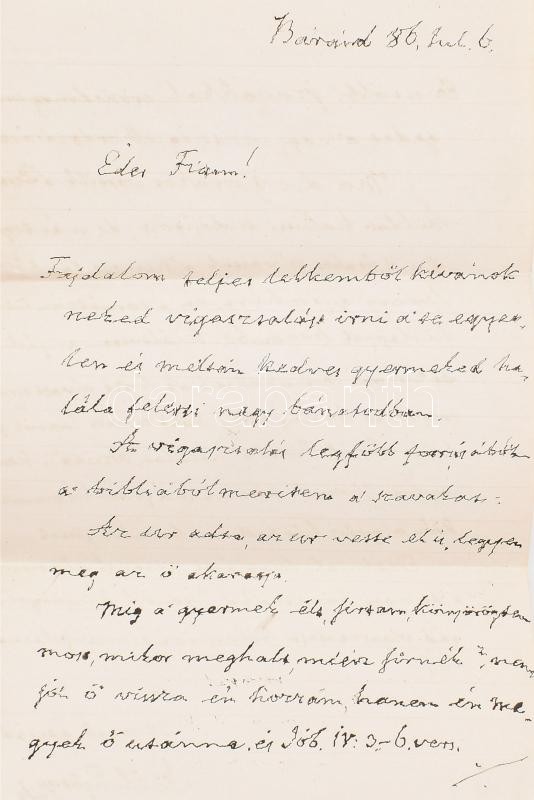 Báránd 86. Jul. 6.
Édes Fiam!
Fájdalom teljes lelkemből kivánok
neked vigasztalást irni a te egyet-
len és méltán kedves gyermeked ha-
lála feletti nagy bánatodban.
Az vigasztalás legfőbb forrásából
a bibliából meritem a szavakat:
Az ur adta, az ur vette el is, legyen
meg az ő akaratja.
Mig a gyermek élt, sirtam, könyörögtem
most, mikor meghalt, miért sirnék?, nem
jöt ő vissza én hozzám, hanem én me-
gyek ő utánna. és Jób. IV: 3-6. vers.
darabanth